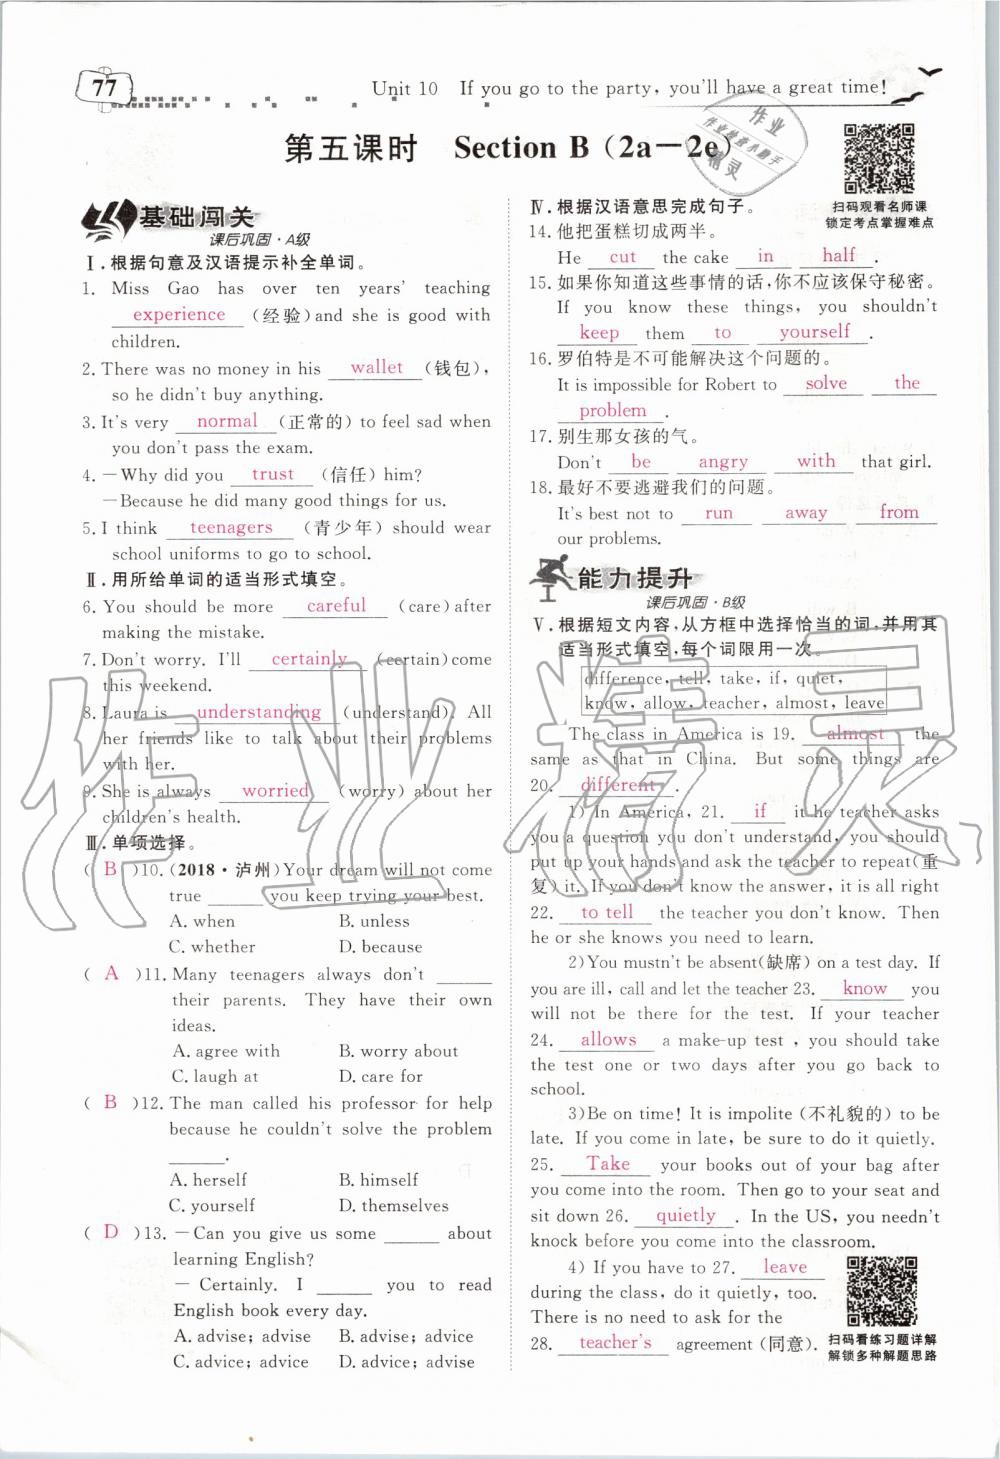 77
Unit 10 If you go to the party, you'll have a great time!
第五课时 Section B（2a－2e）
基础闯关
课后巩固·A级
Ⅰ.根据句意及汉语提示补全单词。
1. Miss Gao has over ten years' teaching
experience （经验）and she is good with
children.
2. There was no money in his wallet （钱包）,
so he didn't buy anything.
3. It's very normal （正常的）to feel sad when
you don't pass the exam.
4. －Why did you trust （信任）him?
－Because he did many good things for us.
5. I think teenagers （青少年）should wear
school uniforms to go to school.
Ⅱ.用所给单词的适当形式填空。
6. You should be more careful （care）after
making the mistake.
7. Don't worry. I'll certainly （certain）come
this weekend.
8. Laura is understanding （understand）. All
her friends like to talk about their problems
with her.
9. She is always worried （worry）about her
children's health.
Ⅲ.单项选择。
（ B ）10.（2018·泸州）Your dream will not come
true ______ you keep trying your best.
A. when B. unless
C. whether D. because
（ A ）11. Many teenagers always don't ______
their parents. They have their own
ideas.
A. agree with B. worry about
C. laugh at D. care for
（ B ）12. The man called his professor for help
because he couldn't solve the problem
______.
A. herself B. himself
C. yourself D. themselves
（ D ）13. －Can you give us some ______ about
learning English?
－ Certainly. I ______ you to read
English book every day.
A. advise; advise B. advise; advice
C. advice; advice D. advice; advise
Ⅳ.根据汉语意思完成句子。
14. 他把蛋糕切成两半。
He cut the cake in half .
15. 如果你知道这些事情的话,你不应该保守秘密。
If you know these things, you shouldn't
keep them to yourself .
16. 罗伯特是不可能解决这个问题的。
It is impossible for Robert to solve the
problem .
17. 别生那女孩的气。
Don't be angry with that girl.
18. 最好不要逃避我们的问题。
It's best not to run away from
our problems.
能力提升
课后巩固·B级
Ⅴ.根据短文内容,从方框中选择恰当的词,并用其
适当形式填空,每个词限用一次。
difference, tell, take, if, quiet,
know, allow, teacher, almost, leave
The class in America is 19. almost the
same as that in China. But some things are
20. different .
1) In America, 21. if the teacher asks
you a question you don't understand, you should
put up your hands and ask the teacher to repeat(重
复) it. If you don't know the answer, it is all right
22. to tell the teacher you don't know. Then
he or she knows you need to learn.
2)You mustn't be absent(缺席) on a test day. If
you are ill, call and let the teacher 23. know you
will not be there for the test. If your teacher
24. allows a make-up test , you should take
the test one or two days after you go back to
school.
3)Be on time! It is impolite (不礼貌的) to be
late. If you come in late, be sure to do it quietly.
25. Take your books out of your bag after
you come into the room. Then go to your seat and
sit down 26. quietly . In the US, you needn't
knock before you come into the classroom.
4) If you have to 27. leave
during the class, do it quietly, too.
There is no need to ask for the
28. teacher's agreement (同意).
扫码观看名师课
锁定考点掌握难点
扫码看练习题详解
解锁多种解题思路
作业精灵